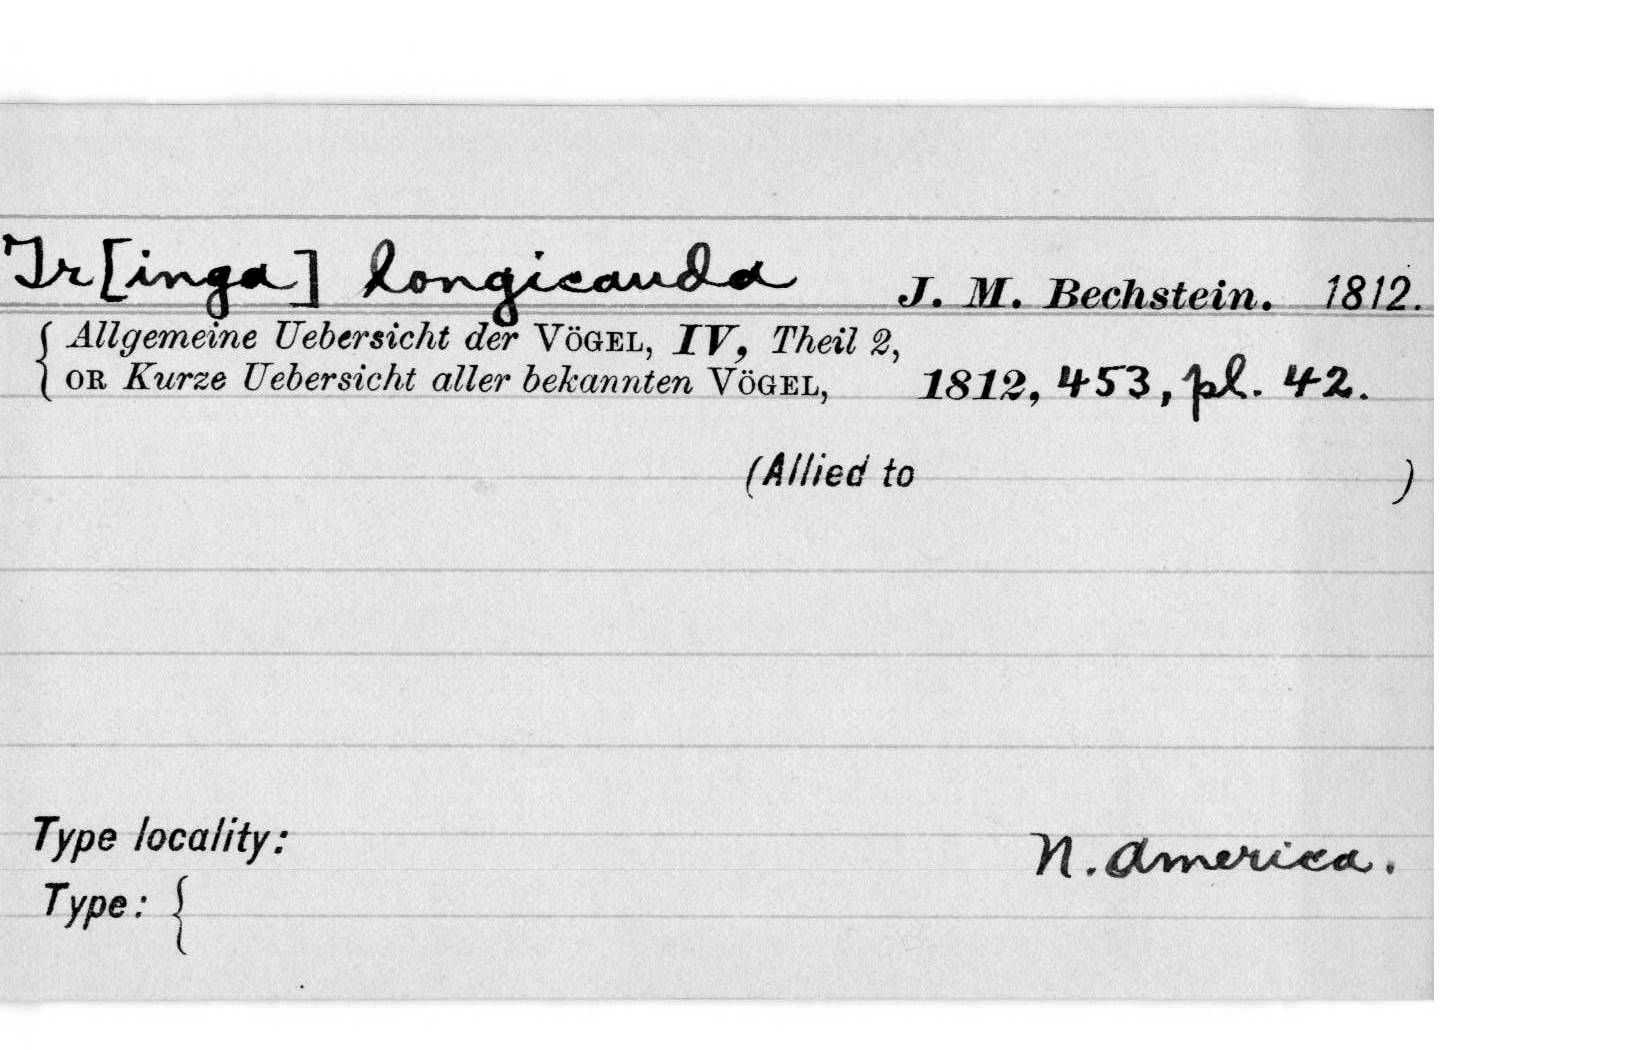 Tr[inga] longicauda J. M. Bechstein. 1812.
Allgemeine Uebersicht der VÖGEL, IV, Theil 2,
OR Kurze Uebersicht aller bekannten VÖGEL, 1812, 453, pl. 42.
(Allied to )
Type locality: N. America.
Type: